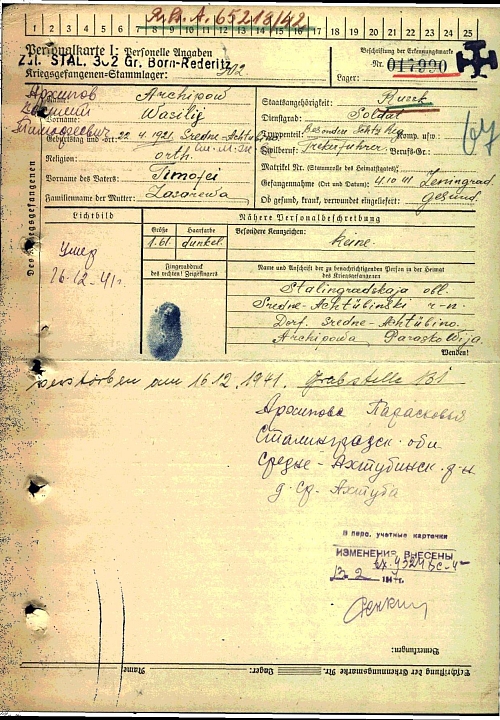 R.B.A. 65218/42
1 2 3 4 5 6 7 8 9 10 11 12 13 14 15 16 17 18 19 20 21 22 23 24 25
Personalkarte I: Personelle Angaben
Beschriftung der Erkennungsmarke
Kriegsgefangenen-Stammlager: 302
STAL. 302 Gr. Born-Rederitz
Nr. 017090
Lager:
Des Kriegsgefangenen
Архипов
Name: Archipow
Staatsangehörigkeit: Russk
Василий
Vorname: Wasilij
Dienstgrad: Soldat
Тимофеевич
Geburtstag und -ort: 22.4.1921, Sredne-Achtubino
Truppenteil: Komp. usw.:
Religion: orth.
Zivilberuf: Berufs-Gr.:
Vorname des Vaters: Timofei
Matrikel Nr. (Stammrolle des Heimatstaates):
Gefangennahme (Ort und Datum): 4.10.41 Leningrad
Familienname der Mutter: Lasarewa
Ob gefund, krank, verwundet eingeliefert: gesund
67
Lichtbild
Nähere Personalbeschreibung
Größe Haarfarbe Besondere Kennzeichen:
1.61 dunkel. keine
Умер
16-12-41г.
Fingerabdruck
des rechten Zeigefingers
Name und Anschrift der zu benachrichtigenden Person in der Heimat
des Kriegsgefangenen
Stalingradskaja obl.
Sredne-Achtubinski r-n.
Dorf. Sredne-Achtubino.
Archipowa Paraskowija.
Wenden!
verstorben am 16.12.1941. Grabstelle
Архипова Парасковья
Сталинградск. обл
Средне-Ахтубинск. р-н
д. Ср. Ахтуба
В перс. учетные карточки
ИЗМЕНЕНИЯ ВНЕСЕНЫ
Bemerkungen:
Beschriftung der Erkennungsmarke Nr. Lager: Name: